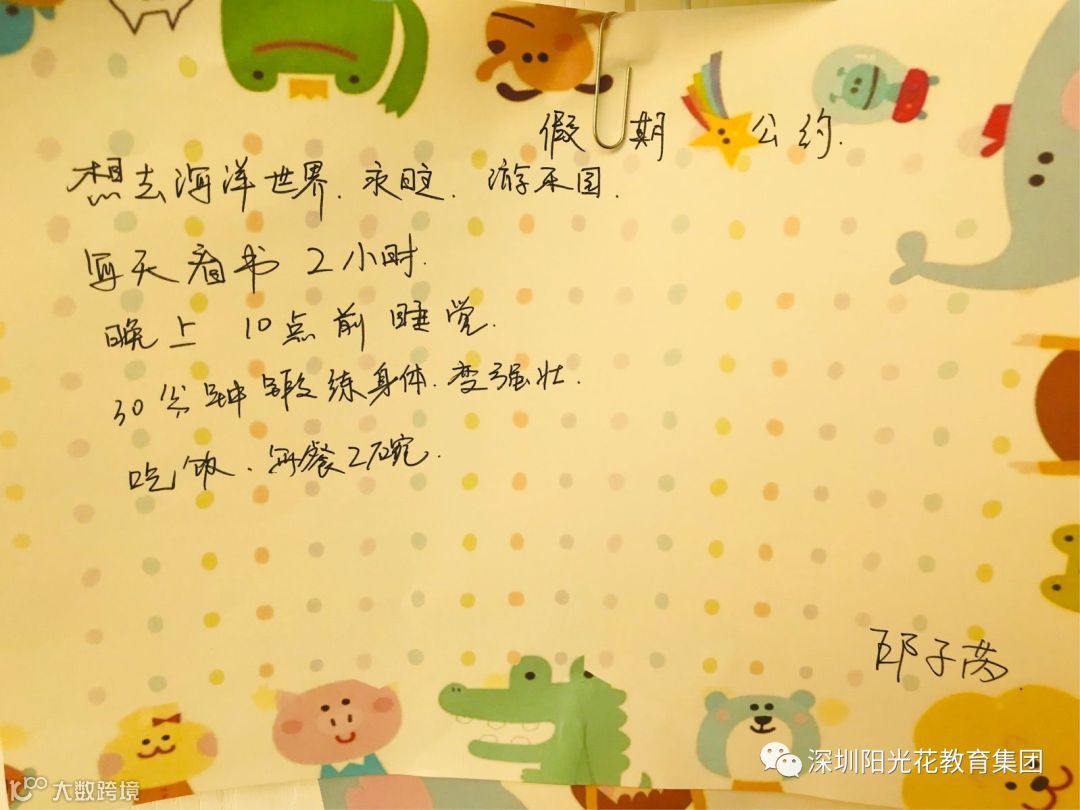 假期公约.
想去海洋世界.灵隐.游乐园.
每天看书 2小时.
晚上 10点前睡觉.
30分钟锻练身体.变强壮.
吃饭.每餐2碗.
邱子芮
深圳阳光花教育集团
10100 大数跨境